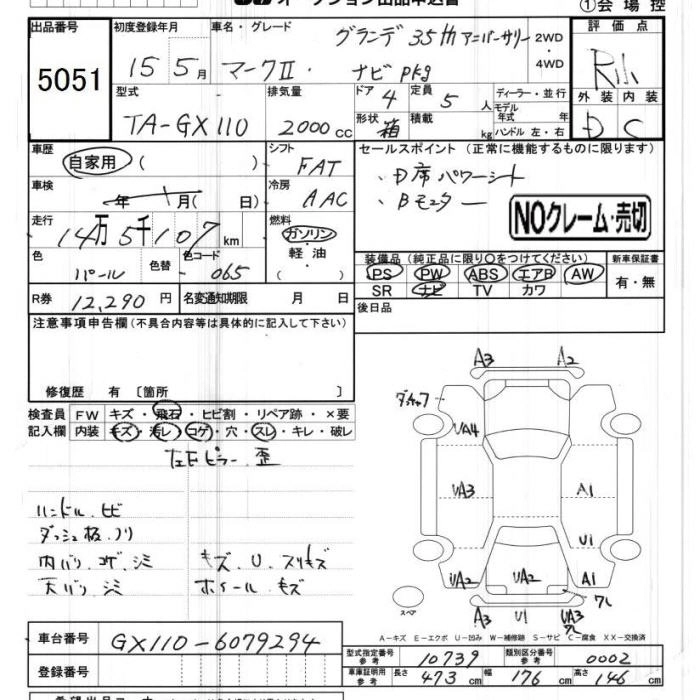 ①会場控
出品番号
5051
初度登録年月
15 5月
車名・グレード
グランデ 35th アニバーサリー
マークⅡ・ ナビ pkg
2WD
4WD
評価点
外装 内装
D C
型式
TA-GX110
排気量
2000cc
ドア 4
形状 箱
定員 5人
積載 kg
ディーラー・並行
モデル年式 年
ハンドル 左・右
車歴
自家用 ( )
シフト
FAT
車検
年 月( 日)
冷房
AAC
走行
14万5千107km
燃料
ガソリン
軽油
( )
色
パール
色替
色コード
065
R券 12,290円
名変通知期限 月 日
セールスポイント (正常に機能するものに限ります)
・D席パワーシート
・Bモニター
NOクレーム・売切
装備品 (純正品に限り○をつけてください)
PS PW ABS エアB AW
SR ナビ TV カワ
新車保証書
有・無
後日品
注意事項申告欄 (不具合内容等は具体的に記入して下さい)
修復歴 有 〔箇所 〕
検査員記入欄
FW キズ・飛石・ヒビ割・リペア跡・×要
内装 キズ・汚レ・コゲ・穴・スレ・キレ・破レ
左Fピラー歪
ハンドル.ヒビ
ダッシュ板.ノリ
内バリ.コゲ.シミ
天バリ.シミ
キズ.U.スリキズ
ホイール.キズ
A3
A2
UA4
UA3
A1
U1
UA2
UA2
A1
A3
U1
UA3
スペア
A-キズ E-エクボ U-凹み W-補修跡 S-サビ C-腐食 XX-交換済
車台番号
GX110-6079294
登録番号
型式指定番号 参考
10739
類別区分番号 参考
0002
車庫証明用 参考
長さ 473cm
幅 176cm
高さ 146cm